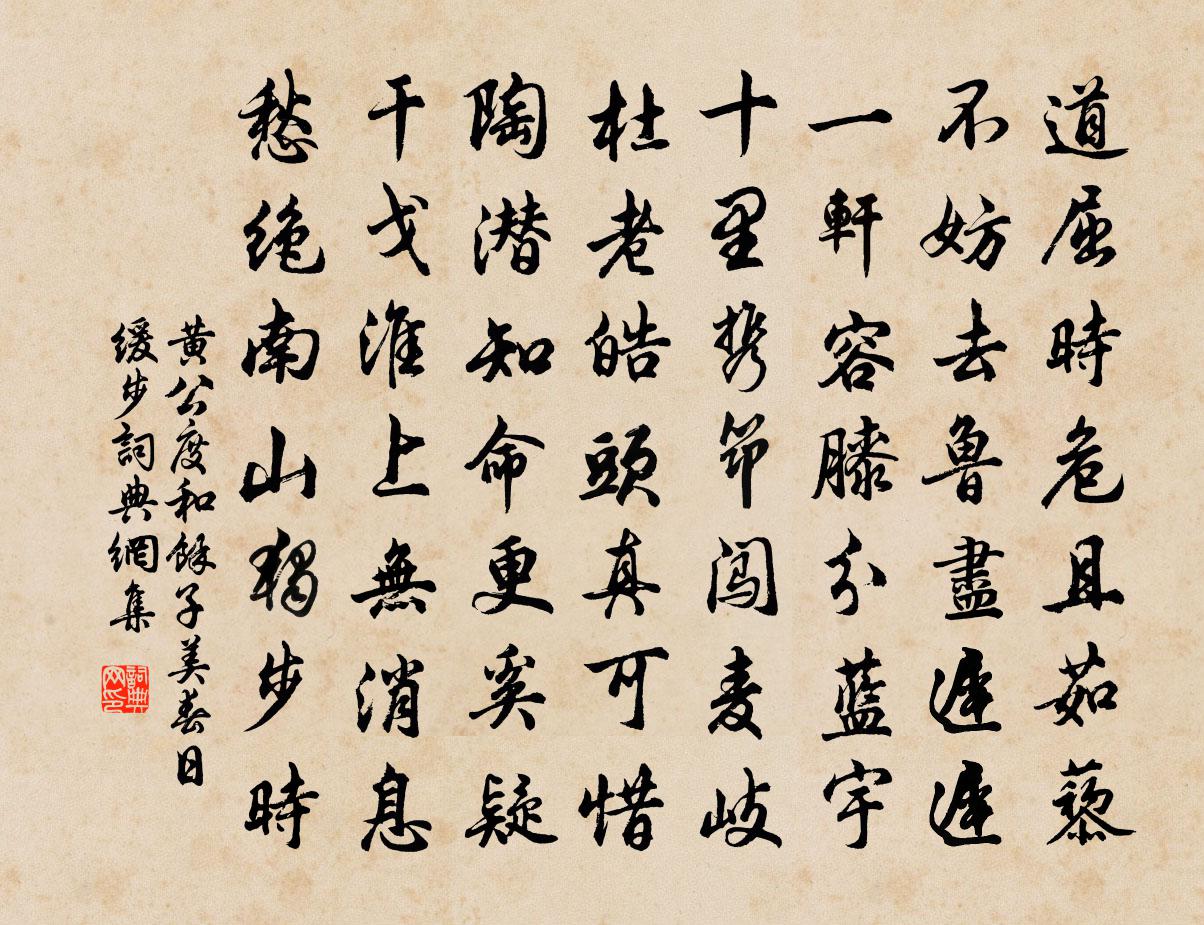 道屈時危且茹藜
不妨去魯盡遲遲
一軒容膝分藍宇
十里携筇闯麦岐
杜老皓頭真可惜
陶潜知命更奚疑
干戈淮上無消息
愁绝南山獨步時
黄公度和餘子美春日
缓步詞典網集
詞典网印